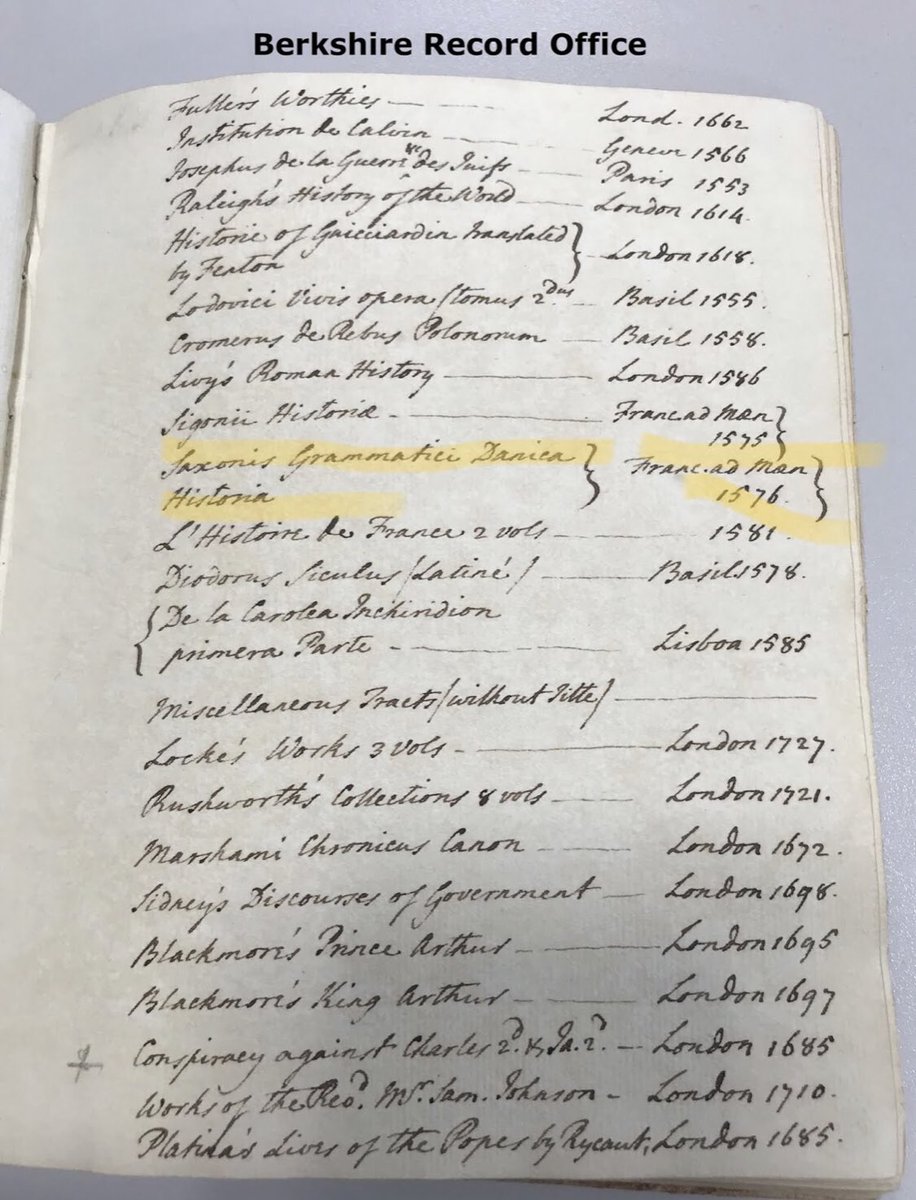 Berkshire Record Office
Fuller's Worthies — Lond. 1662
Institution de Calvin — Geneve 1566
Josephus de la Guerre des Juifs — Paris 1553
Raleigh's History of the World — London 1614
Historie of Guicciardin Translated
by Fenton } — London 1618.
Lodovici Vivis opera (tomus 2dus — Basil 1555.
Cromerus de Rebus Polonorum — Basil 1558.
Livy's Roman History — London 1586
Sigonii Historiæ — Franc. ad Mæn
1575 }
Saxonis Grammatici Danica } Franc. ad Mæn
Historia 1576. }
L'Histoire de France 2 vols — 1581.
Diodorus Siculus (Latiné) — Basil 1578.
{ De la Carolea Inchiridion
primera Parte — Lisboa 1585
Miscellaneous Tracts (without Title) —
Locke's Works 3 vols — London 1727.
Rushworth's Collections 8 vols — London 1721.
Marshami Chronicus Canon — London 1672.
Sidney's Discourses of Government — London 1698.
Blackmore's Prince Arthur — London 1695
Blackmore's King Arthur — London 1697
Conspiracy against Charles 2d. & Ja. 2d. — London 1685
Works of the Revd. Mr. Sam. Johnson — London 1710.
Platina's Lives of the Popes by Rycaut, London 1685.